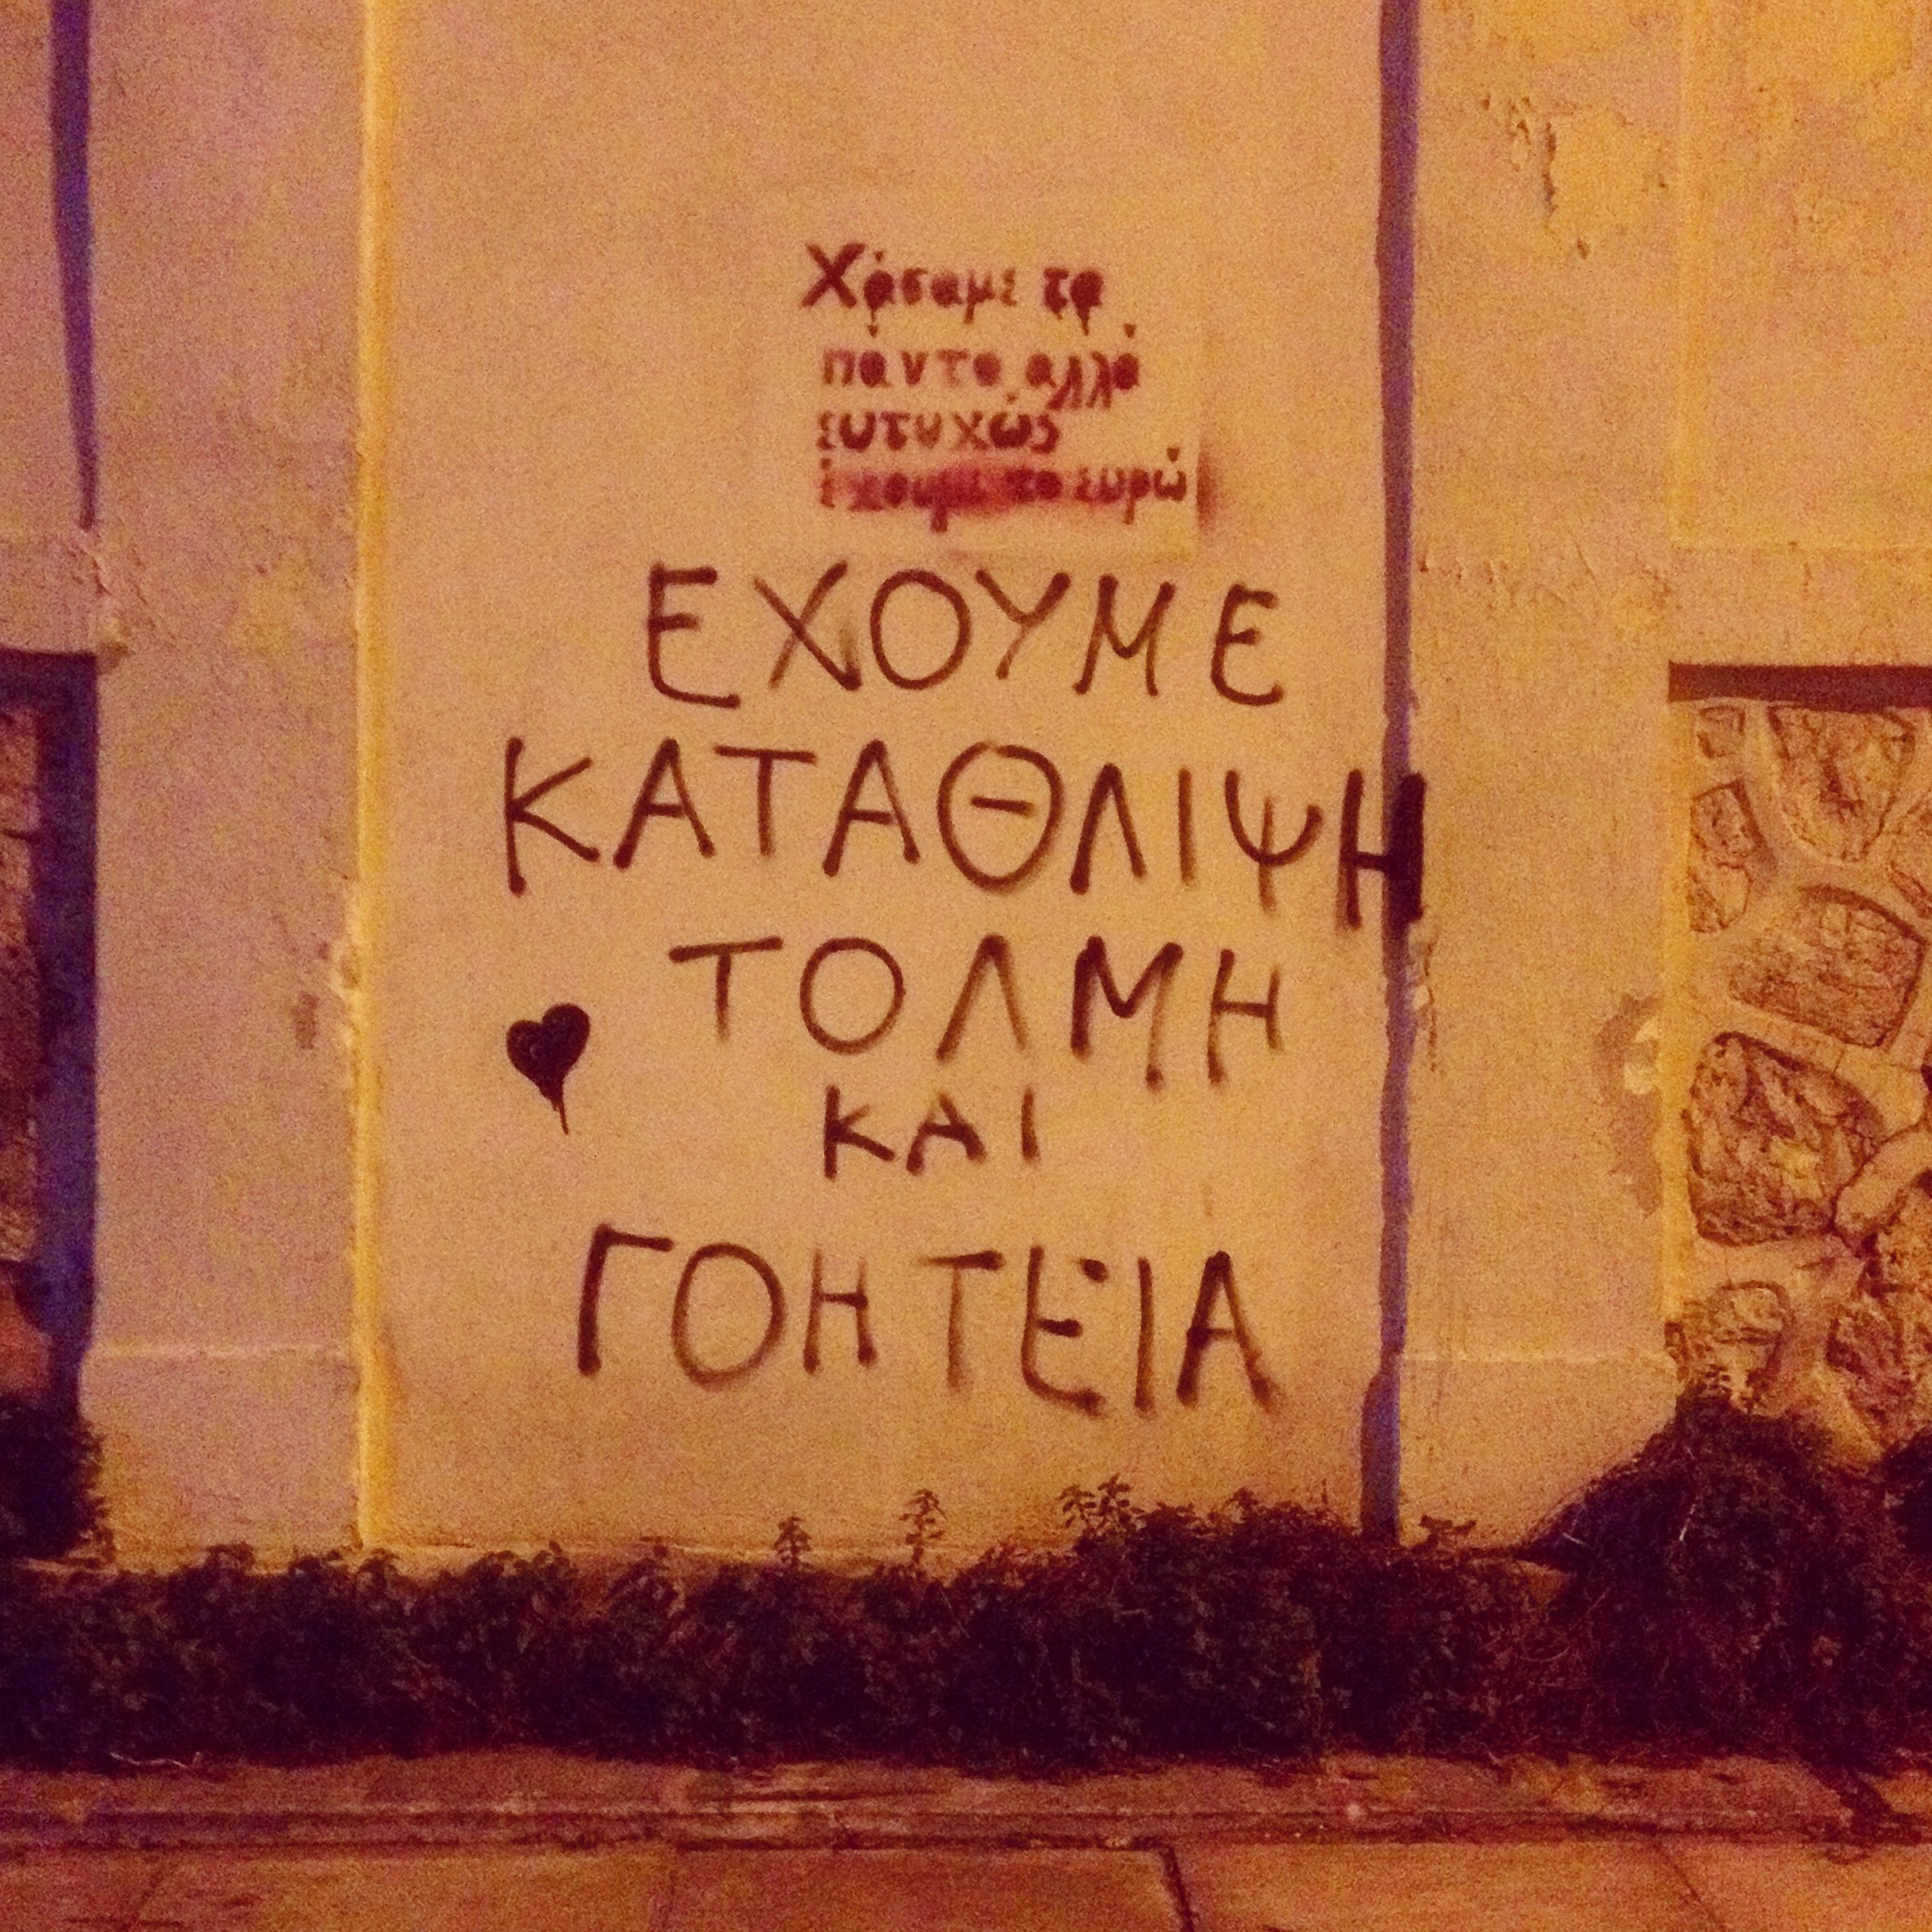 Χάσαμε τα
πάντα αλλά
ευτυχώς
έχουμε το ευρώ
ΕΧΟΥΜΕ
ΚΑΤΑΘΛΙΨΗ
ΤΟΛΜΗ
ΚΑΙ
ΓΟΗΤΕΙΑ